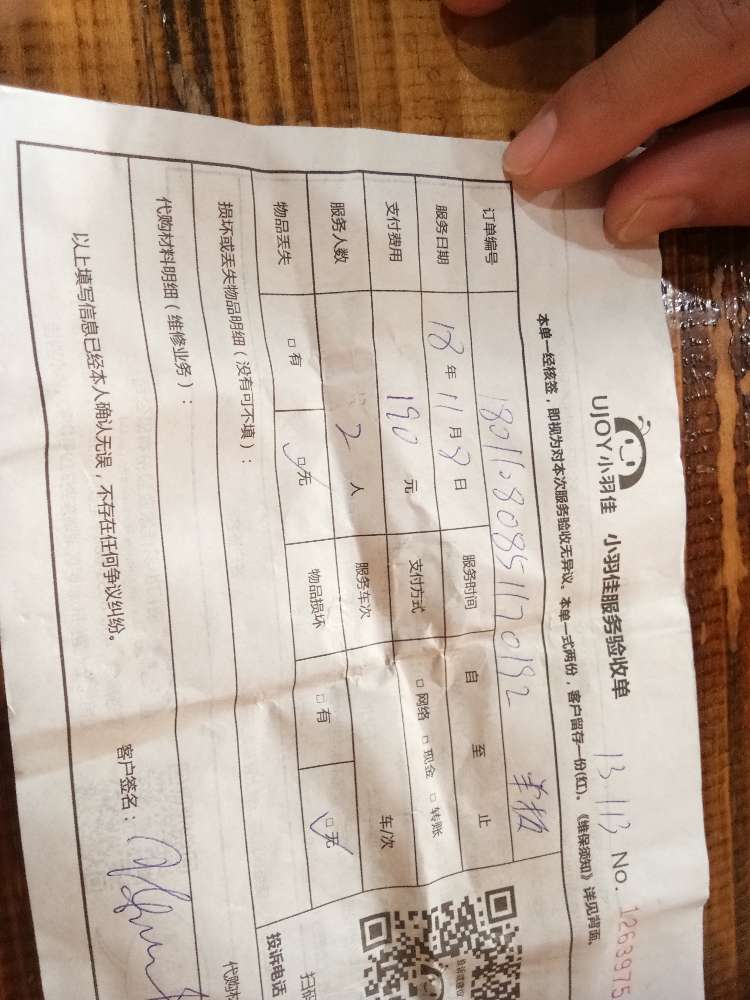 UJOY小羽佳 小羽佳服务验收单 13 113 No. 1263975
本单一经核签，即视为对本次服务验收无异议。本单一式两份，客户留存一份(红)。《维保须知》详见背面。
订单编号 180110808511720192
服务日期 18年11月8日 服务时间 自 至 止
支付费用 190元 支付方式 □网络 □现金 □转账
服务人数 2人 服务车次 车/次
物品丢失 □有 □无 物品损坏 □有 □无
损坏或丢失物品明细（没有可不填）：
代购材料明细（维修业务）：
以上填写信息已经本人确认无误，不存在任何争议纠纷。 客户签名：
扫码
投诉电话
代购材